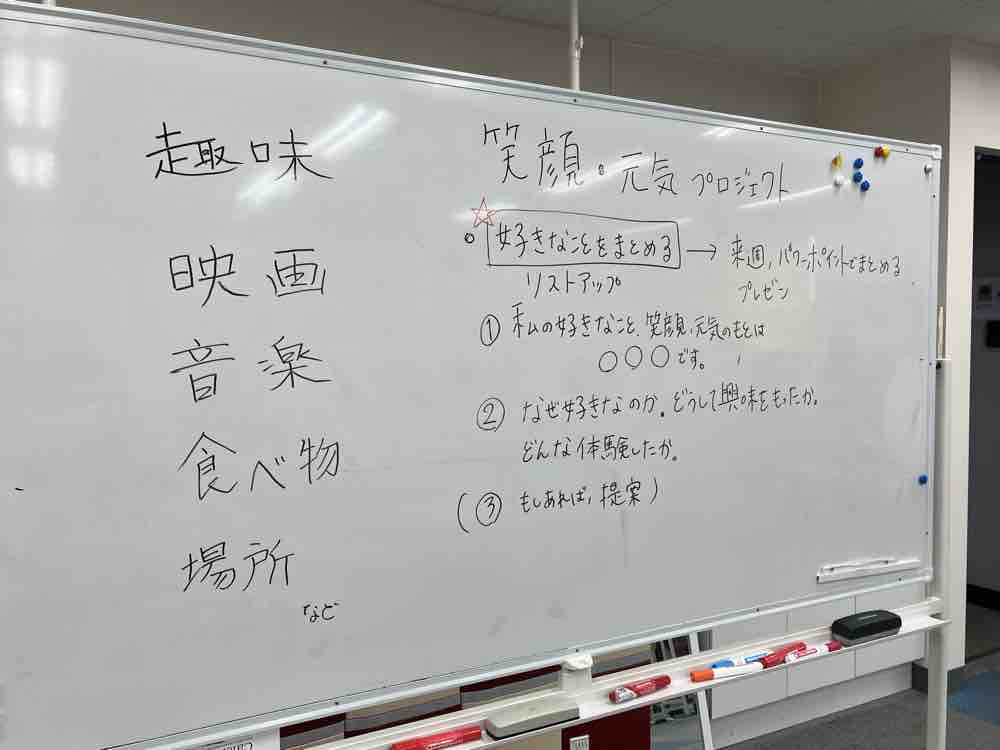 趣味
映画
音楽
食べ物
場所
など
笑顔・元気 プロジェクト
☆
○ 好きなことをまとめる → 来週, パワーポイントでまとめる
リストアップ
プレゼン
① 私の好きなこと、笑顔、元気のもとは
○○○です。
② なぜ好きなのか。どうして興味をもったか。
どんな体験したか。
(③ もしあれば, 提案)